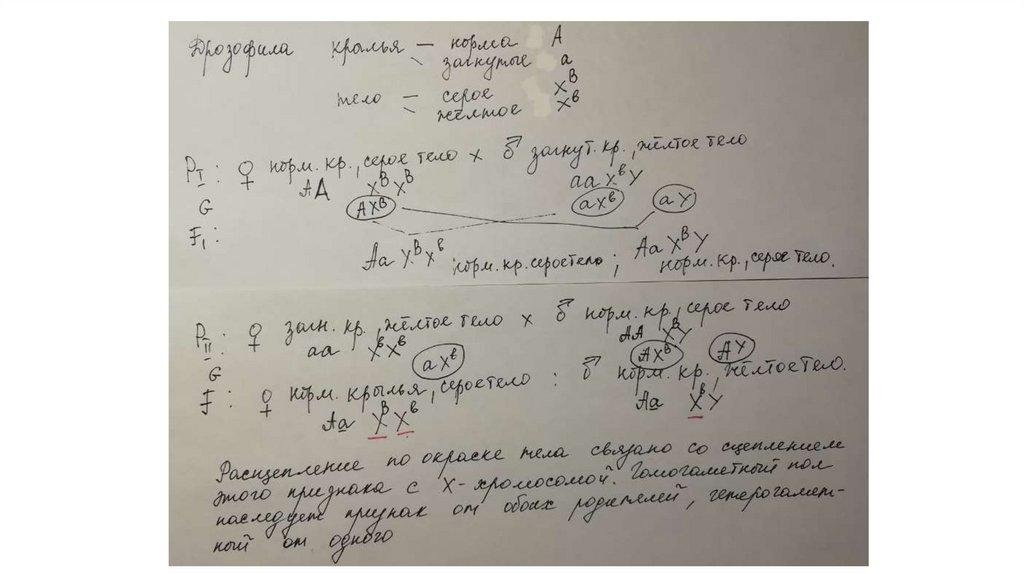 Дрозофила крылья — норма A
загнутые a
тело — серое Xᴮ
жёлтое Xᵇ
P I : ♀ норм. кр., серое тело x ♂ загнут. кр., жёлтое тело
AA XᴮXᴮ aa XᵇY
G AXᴮ aXᵇ aY
F₁ :
Aa XᴮXᵇ норм. кр. серое тело ; Aa XᴮY норм. кр., серое тело.
P II : ♀ загн. кр., жёлтое тело x ♂ норм. кр., серое тело
aa XᵇXᵇ AA XᴮY
G aXᵇ AXᴮ AY
F : ♀ норм. крылья, серое тело : ♂ норм. кр., жёлтое тело.
Aa XᴮXᵇ Aa XᵇY
Расщепление по окраске тела связано со сцеплением
этого признака с X-хромосомой. Гомогаметный пол
наследует признак от обоих родителей, гетерогамет-
ный от одного